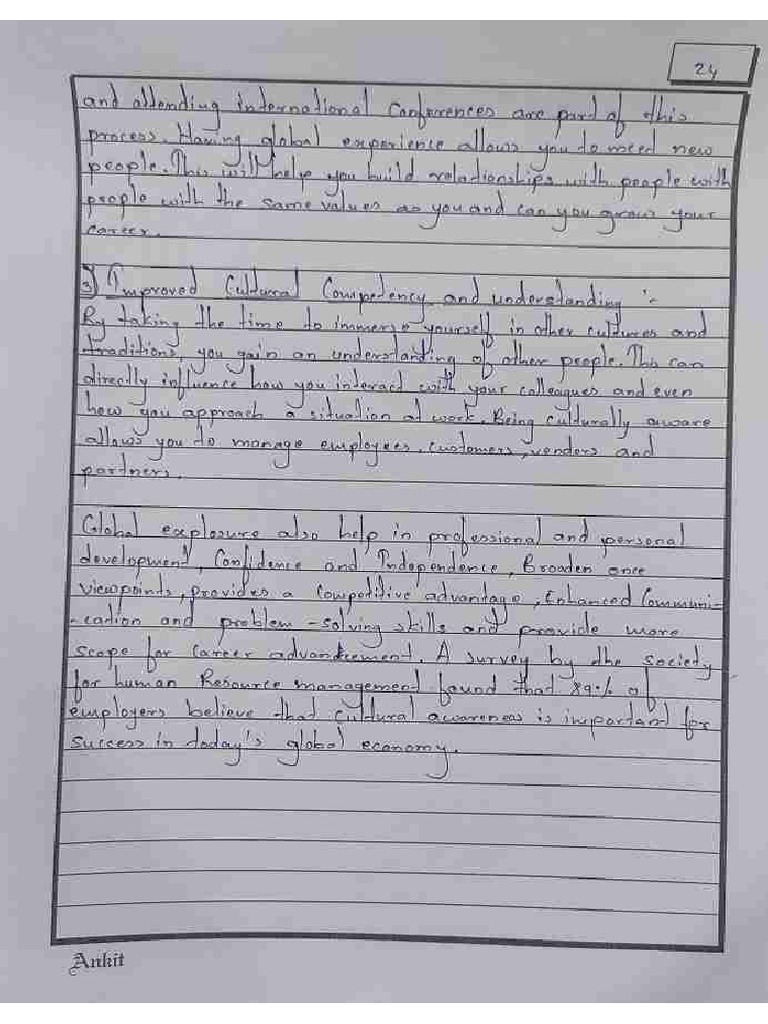 24
and attending international Conferences are part of this
process. Having global experience allows you to meet new
people. This will help you build relationships with people with
people with the same values as you and can you grow your
career.
3) Improved Cultural Competency and understanding :-
By taking the time to immerse yourself in other cultures and
traditions, you gain an understanding of other people. This can
directly influence how you interact with your colleagues and even
how you approach a situation at work. Being culturally aware
allows you to manage employees, customers, venders and
partners.
Global explosure also help in professional and personal
development, Confidence and Independence, Broaden once
viewpoints, provides a competitive advantage, Enhanced Communi-
-cation and problem-solving skills and provide more
scope for career advancement. A survey by the society
for human Resource management found that 89% of
employers believe that cultural awareness is important for
success in today's global economy.
Ankit